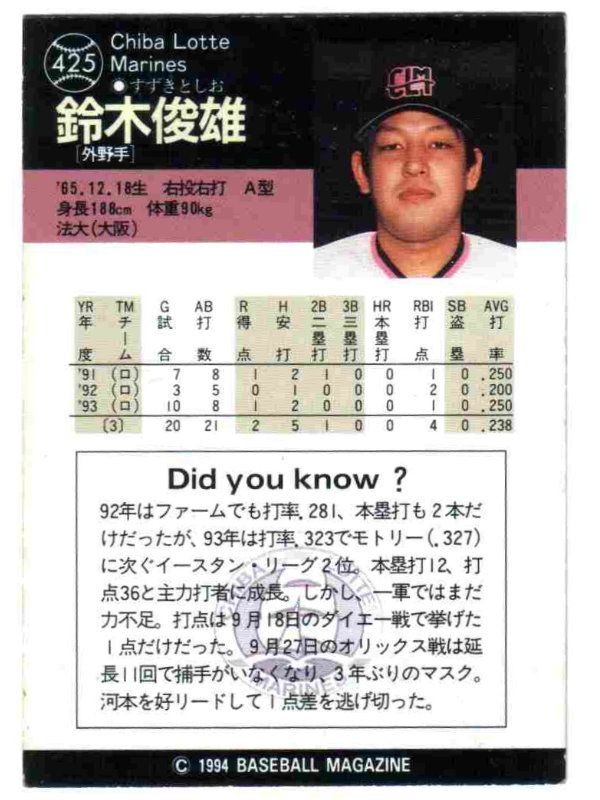 425
Chiba Lotte
Marines
●すずきとしお
鈴木俊雄
[外野手]
'65.12.18生 右投右打 A型
身長188cm 体重90kg
法大(大阪)
YR TM G AB R H 2B 3B HR RBI SB AVG
年度 チーム 試合 打数 得点 安打 二塁打 三塁打 本塁打 打点 盗塁 打率
'91 (ロ) 7 8 1 2 1 0 0 1 0 .250
'92 (ロ) 3 5 0 1 0 0 0 2 0 .200
'93 (ロ) 10 8 1 2 0 0 0 1 0 .250
〔3〕 20 21 2 5 1 0 0 4 0 .238
Did you know ?
92年はファームでも打率.281、本塁打も2本だ
けだったが、93年は打率.323でモトリー(.327)
に次ぐイースタン・リーグ2位、本塁打12、打
点36と主力打者に成長。しかし、一軍ではまだ
力不足。打点は9月18日のダイエー戦で挙げた
1点だけだった。9月27日のオリックス戦は延
長11回で捕手がいなくなり、3年ぶりのマスク。
河本を好リードして1点差を逃げ切った。
CHIBA LOTTE
MARINES
© 1994 BASEBALL MAGAZINE